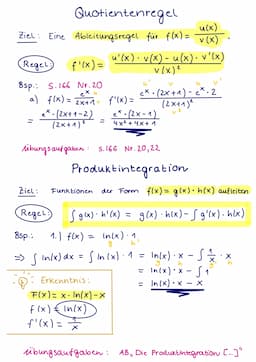 Quotientenregel
Ziel: Eine Ableitungsregel für f(x) = u(x)/v(x).
Regel: f'(x) = (u'(x) · v(x) - u(x) · v'(x))/v(x)²
Bsp.: S.166 Nr. 20
a) f(x) = eˣ/(2x+1) f'(x) = (eˣ · (2x+1) - eˣ · 2)/(2x+1)²
= eˣ · (2x+1-2)/(2x+1)² = eˣ · (2x-1)/(4x²+4x+1)
Übungsaufgaben: S.166 Nr. 20,22
Produktintegration
Ziel: Funktionen der Form f(x) = g(x) · h(x) aufleiten
Regel: ∫ g(x) · h'(x) = g(x) · h(x) - ∫ g'(x) · h(x)
Bsp.: 1.) f(x) = ln(x) · 1
g h'
⇒ ∫ ln(x) dx = ∫ ln(x) · 1 = ln(x) · x - ∫ 1/x · x
= ln(x) · x - ∫ 1
= ln(x) · x - x
Erkenntnis:
F(x) = x · ln(x) - x
f(x) = ln(x)
f'(x) = 1/x
Übungsaufgaben: AB „Die Produktintegration [...]"